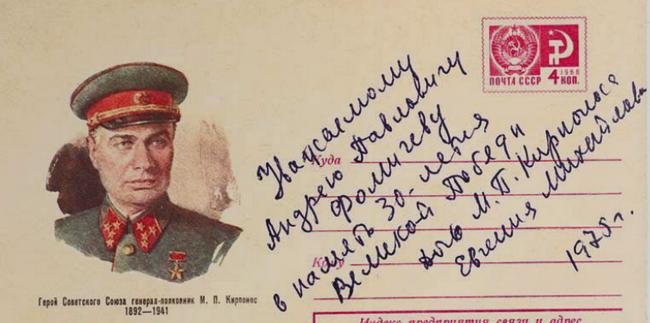 1966
ПОЧТА СССР 4 КОП.
Уважаемому
Андрею Павловичу
Фомичеву
Куда
в память 30-летия
Великой Победы
Кому
М.П. Кирпоноса
Евгения Михайлова
1975 г.
Герой Советского Союза генерал-полковник М. П. Кирпонос
1892—1941
Индекс предприятия связи и адрес